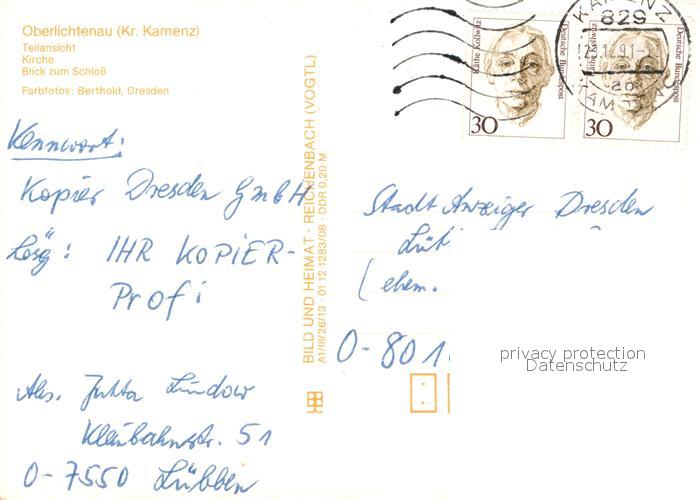 Oberlichtenau (Kr. Kamenz)
Teilansicht
Kirche
Blick zum Schloß
Farbfotos: Berthold, Dresden
Kennwort:
Kopier Dresden GmbH
Lösg: IHR KOPIER-
Profi
Abs. Jutta Lindow
Kleinbahnstr. 51
O-7550 Lübben
BILD UND HEIMAT · REICHENBACH (VOGTL)
A1/III/26/13 · 01 12 1283/08 · DDR 0,20 M
Käthe Kollwitz
Deutsche Bundespost
30
Käthe Kollwitz
Deutsche Bundespost
30
KAMENZ
829
Stadt Anzeiger Dresden
(ehem.
O-801
privacy protection
Datenschutz